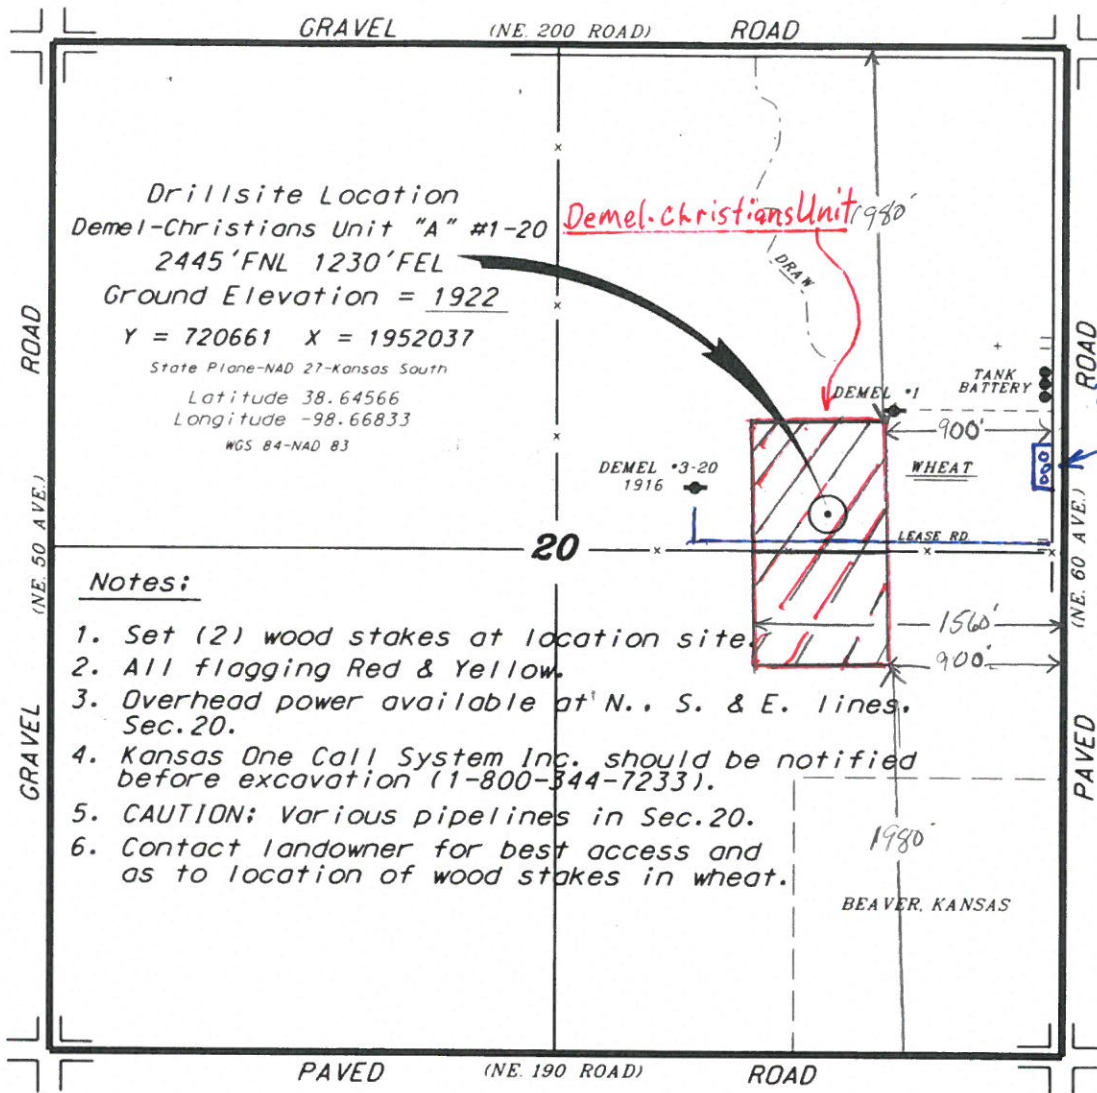 GRAVEL (NE. 200 ROAD) ROAD
Drillsite Location
Demel-Christians Unit "A" #1-20
2445'FNL 1230'FEL
Ground Elevation = 1922
Y = 720661 X = 1952037
State Plane-NAD 27-Kansas South
Latitude 38.64566
Longitude -98.66833
WGS 84-NAD 83
Demel-Christians Unit
1980'
DRAW
ROAD
(NE. 50 AVE.)
GRAVEL
ROAD
(NE. 60 AVE.)
PAVED
TANK
BATTERY
DEMEL #1
900'
WHEAT
DEMEL #3-20
1916
LEASE RD.
20
1560'
900'
Notes:
1. Set (2) wood stakes at location site.
2. All flagging Red & Yellow.
3. Overhead power available at N., S. & E. lines,
Sec.20.
4. Kansas One Call System Inc. should be notified
before excavation (1-800-344-7233).
5. CAUTION: Various pipelines in Sec.20.
6. Contact landowner for best access and
as to location of wood stakes in wheat.
1980'
BEAVER, KANSAS
PAVED (NE. 190 ROAD) ROAD